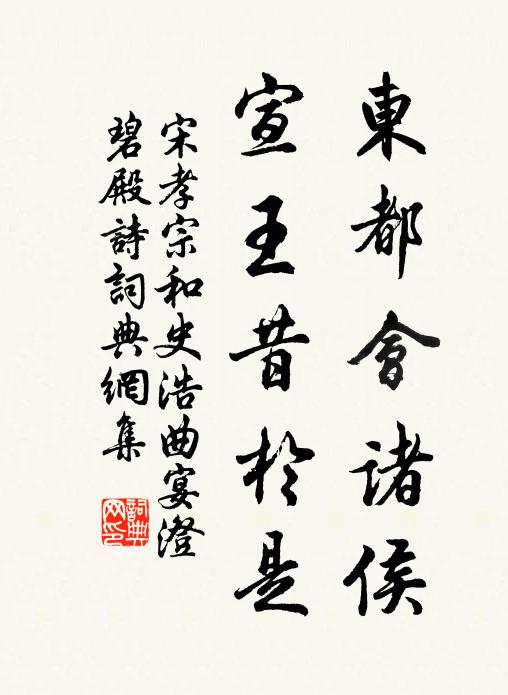 東都會諸侯
宣王昔於是
宋孝宗和史浩曲宴澄
碧殿詩詞典網集
詞典
网印